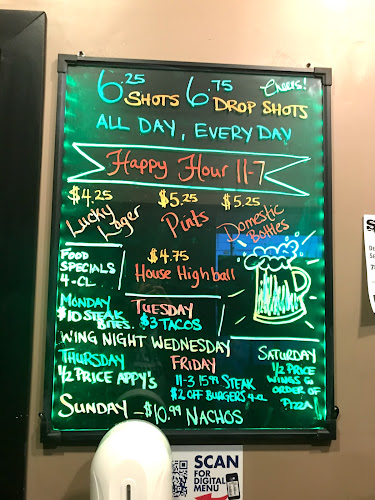 6.25 SHOTS 6.75 DROP SHOTS
Cheers!
ALL DAY, EVERYDAY
Happy Hour 11-7
$4.25 $5.25 $5.25
Lucky Lager Pints Domestic Bottles
$4.75
House Highball
FOOD
SPECIALS
4-CL
MONDAY
$10 STEAK
BITES.
TUESDAY
$3 TACOS
WING NIGHT WEDNESDAY
THURSDAY
1/2 PRICE APPY'S
FRIDAY
11-3 15.99 STEAK
$2 OFF BURGERS 4-CL
SATURDAY
1/2 PRICE
WINGS &
ORDER OF
PIZZA!
SUNDAY - $10.99 NACHOS
SCAN
FOR
DIGITAL
MENU